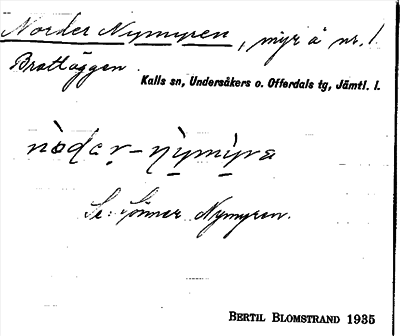 Norder Nymyren, myr å nr. 1
Brattäggen
Kalls sn, Undersåkers o. Offerdals tg, Jämtl. l.
nòdar-nỳmỳra
Se: Sönner Nymyren.
BERTIL BLOMSTRAND 1935